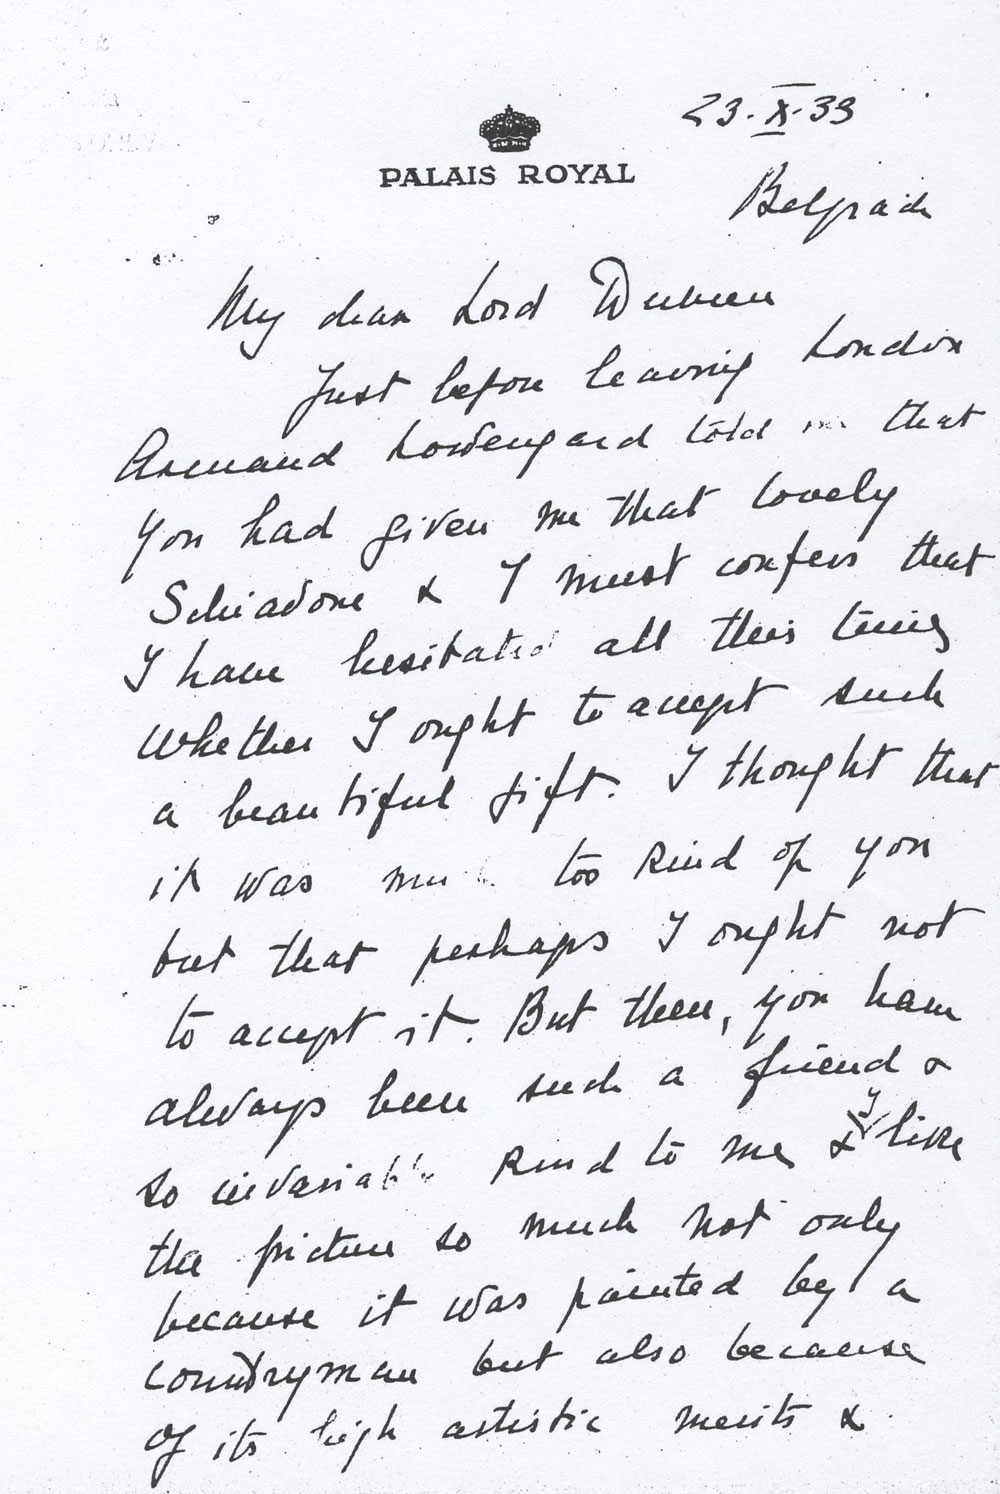 23.X.33
PALAIS ROYAL
Belgrade
My dear Lord Duveen
Just before leaving London
Armand Lowengard told me that
you had given me that lovely
Schiadone & I must confess that
I have hesitated all this time
whether I ought to accept such
a beautiful gift. I thought that
it was much too kind of you
but that perhaps I ought not
to accept it. But then, you have
always been such a friend &
so invariably kind to me & I like
the picture so much not only
because it was painted by a
countryman but also because
of its high artistic merits &